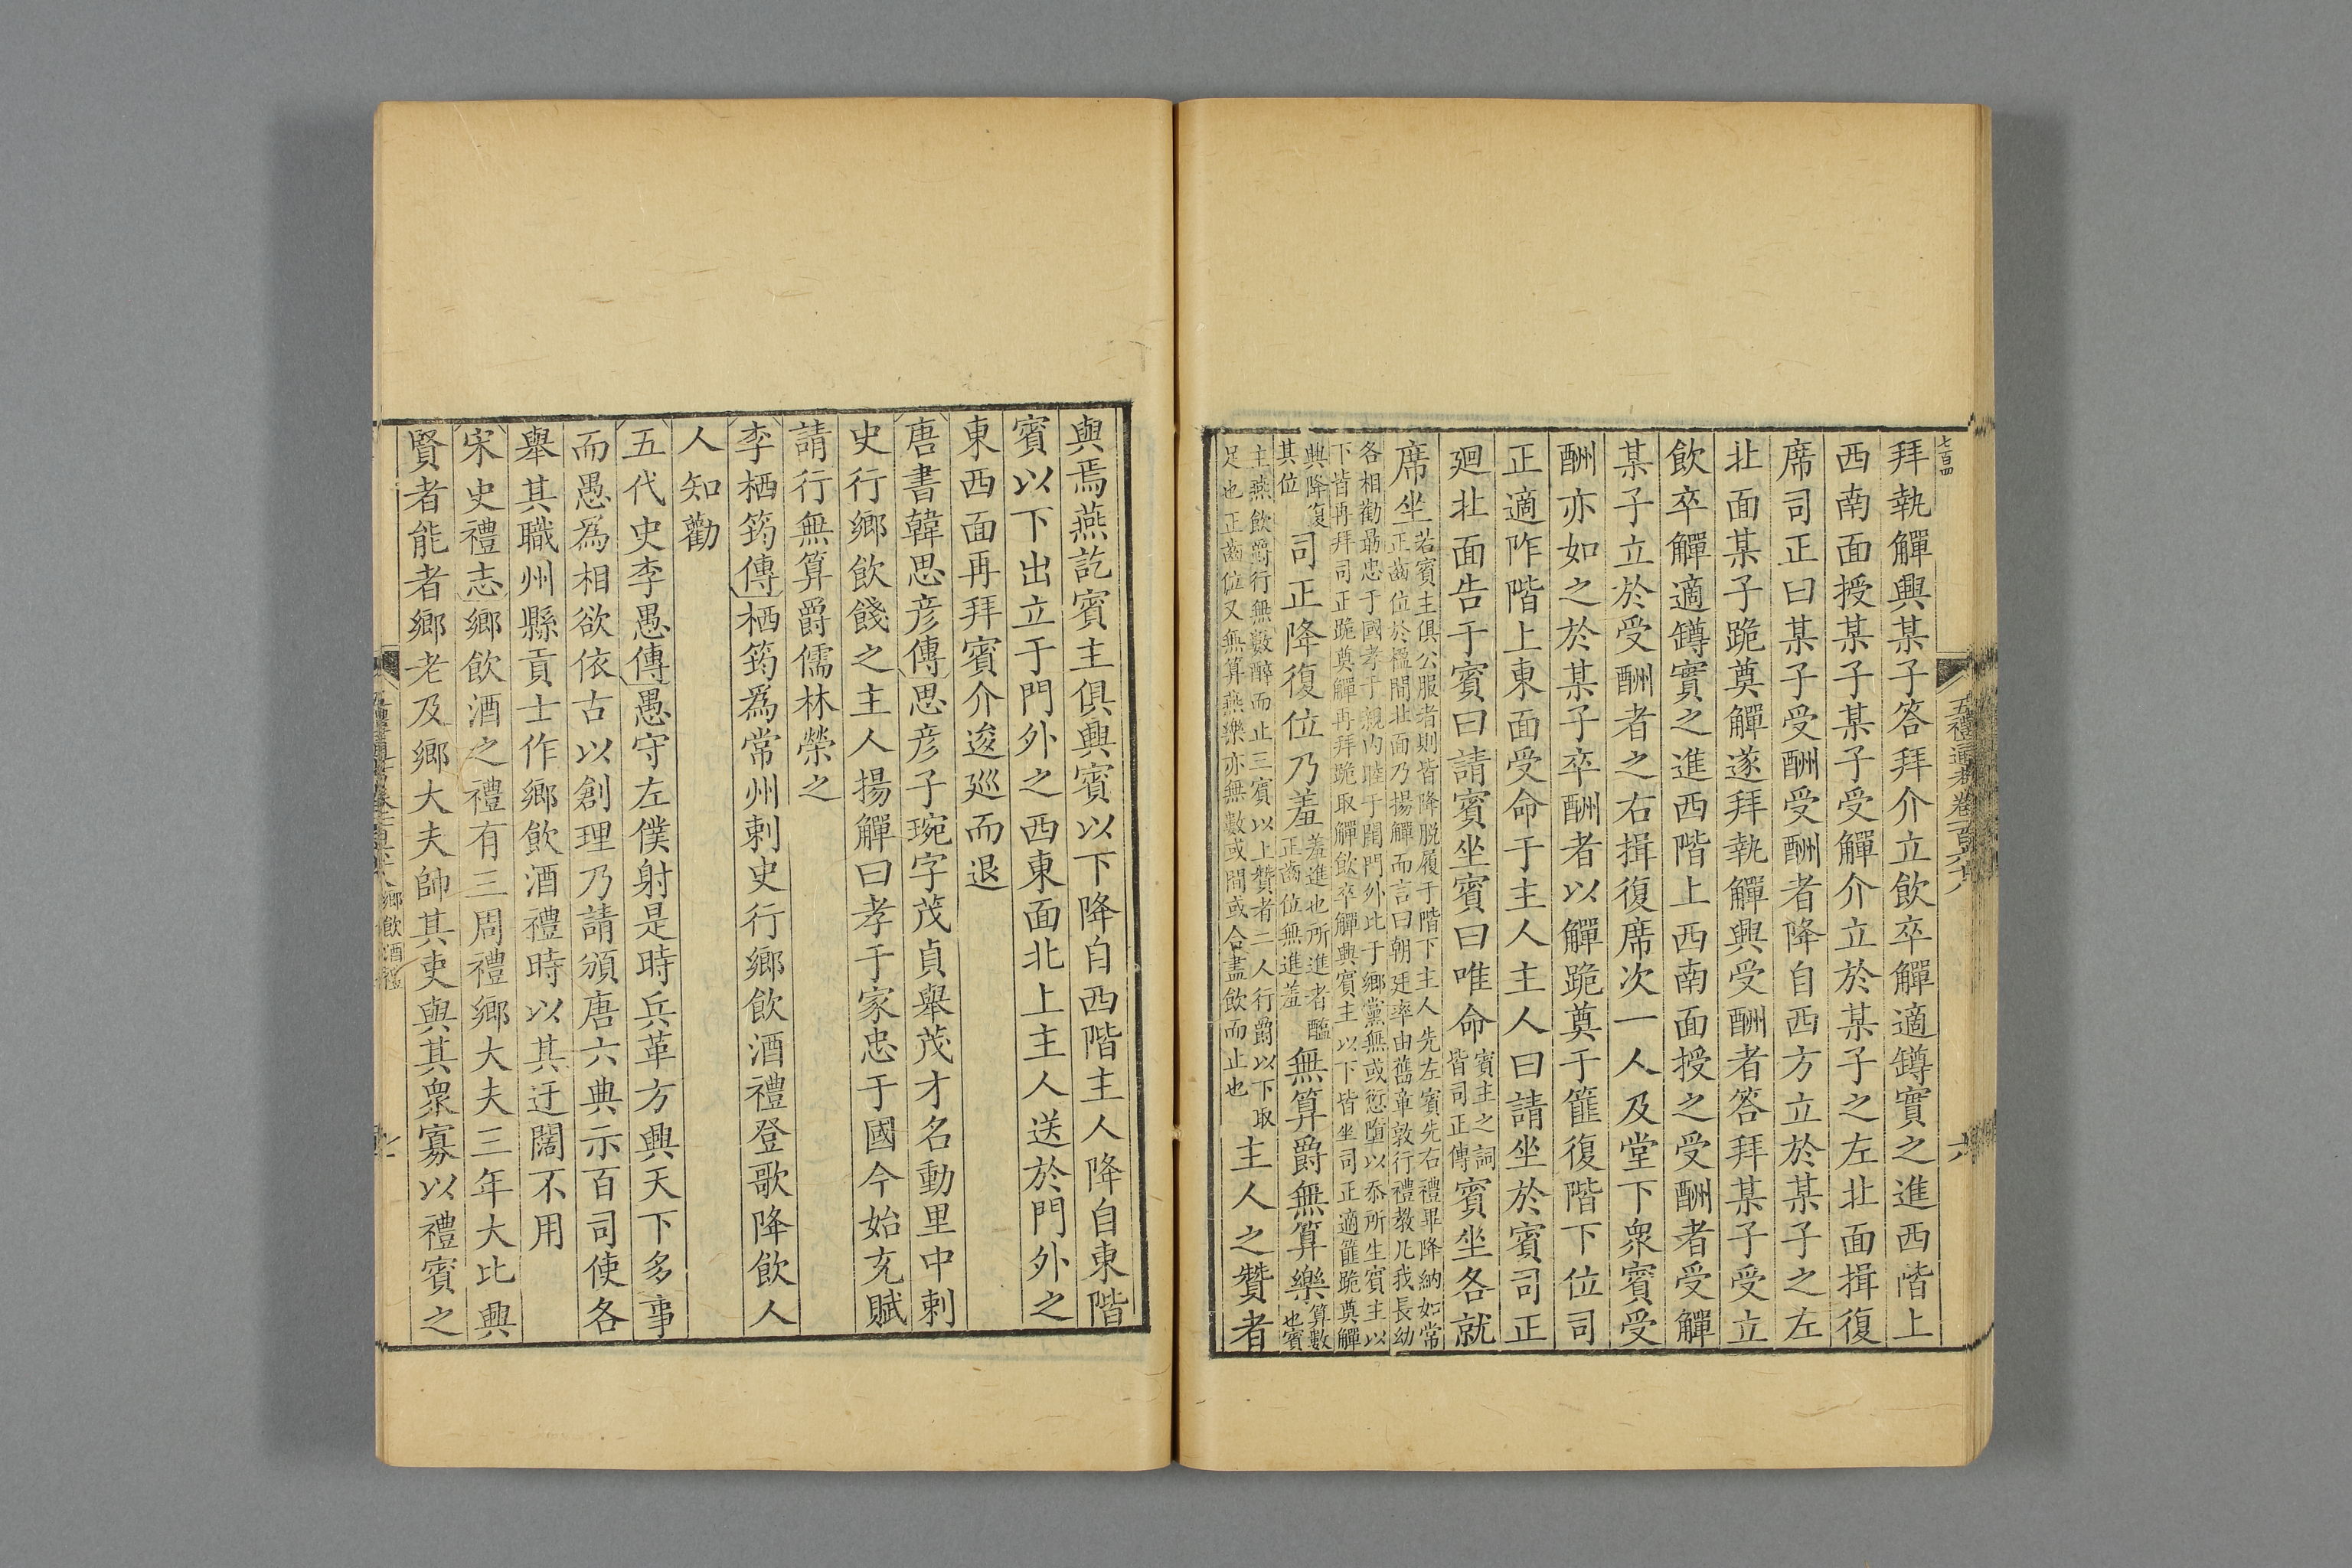 七百四
五禮通考卷一百六十八
六
拜執觶興某子答拜介立飲卒觶適罇實之進西階上
西南面授某子某子受觶介立於某子之左北面揖復
席司正曰某子受酬受酬者降自西方立於某子之左
北面某子跪奠觶遂拜執觶興受酬者答拜某子受立
飲卒觶適罇實之進西階上西南面授之受酬者受觶
某子立於受酬者之右揖復席次一人及堂下衆賓受
酬亦如之於某子卒酬者以觶跪奠于篚復階下位司
正適阼階上東面受命于主人主人曰請坐於賓司正
廻北面告于賓曰請賓坐賓曰唯命賓主之詞皆司正傳賓坐各就
席坐若賓主俱公服者則皆降脱履于階下主人先左賓先右禮畢降納如常
正齒位於楹間北面乃揚觶而言曰朝廷率由舊章敦行禮教凡我長幼
各相勸勗忠于國孝于親內睦于閨門外比于鄉黨無或愆墮以忝所生賓主以
下皆再拜司正跪奠觶再拜跪取觶飲卒觶興賓主以下皆坐司正適篚跪奠觶
興降復其位司正降復位乃羞羞進也所進者醢正齒位無進羞無算爵無算樂算數也賓
主燕飲爵行無數醉而止三賓以上贊者二人行爵以下取
足也正齒位又無算燕樂亦無數或間或合盡飲而止也主人之贊者
與焉燕訖賓主俱興賓以下降自西階主人降自東階
賓以下出立于門外之西東面北上主人送於門外之
東西面再拜賓介逡巡而退
唐書韓思彦傳思彦子琬字茂貞舉茂才名動里中刺
史行鄉飲餞之主人揚觶曰孝于家忠于國今始充賦
請行無算爵儒林榮之
李栖筠傳栖筠爲常州刺史行鄉飲酒禮登歌降飲人
人知勸
五代史李愚傳愚守左僕射是時兵革方興天下多事
而愚爲相欲依古以創理乃請頒唐六典示百司使各
舉其職州縣貢士作鄉飲酒禮時以其迂闊不用
宋史禮志鄉飲酒之禮有三周禮鄉大夫三年大比興
賢者能者鄉老及鄉大夫帥其吏與其衆寡以禮賓之
鄉飲酒禮